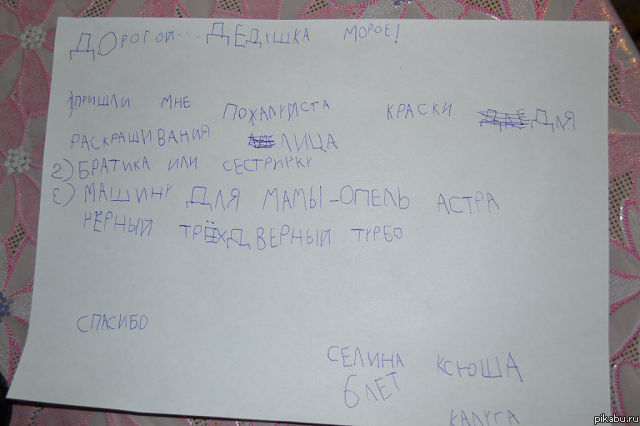 ДОРОГОЙ... ДЕДУШКА МОРОЕ!
1) ПРИШЛИ МНЕ ПОЖАЛУЙСТА КРАСКИ ДЛЯ
РАСКРАШИВАНИЯ ЛИЦА
2) БРАТИКА ИЛИ СЕСТРИЧКУ
3) МАШИНУ ДЛЯ МАМЫ-ОПЕЛЬ АСТРА
ЧЁРНЫЙ ТРЁХДВЕРНЫЙ ТУРБО
СПАСИБО
СЕЛИНА КСЮША
6 ЛЕТ
КАЛУГА
pikabu.ru